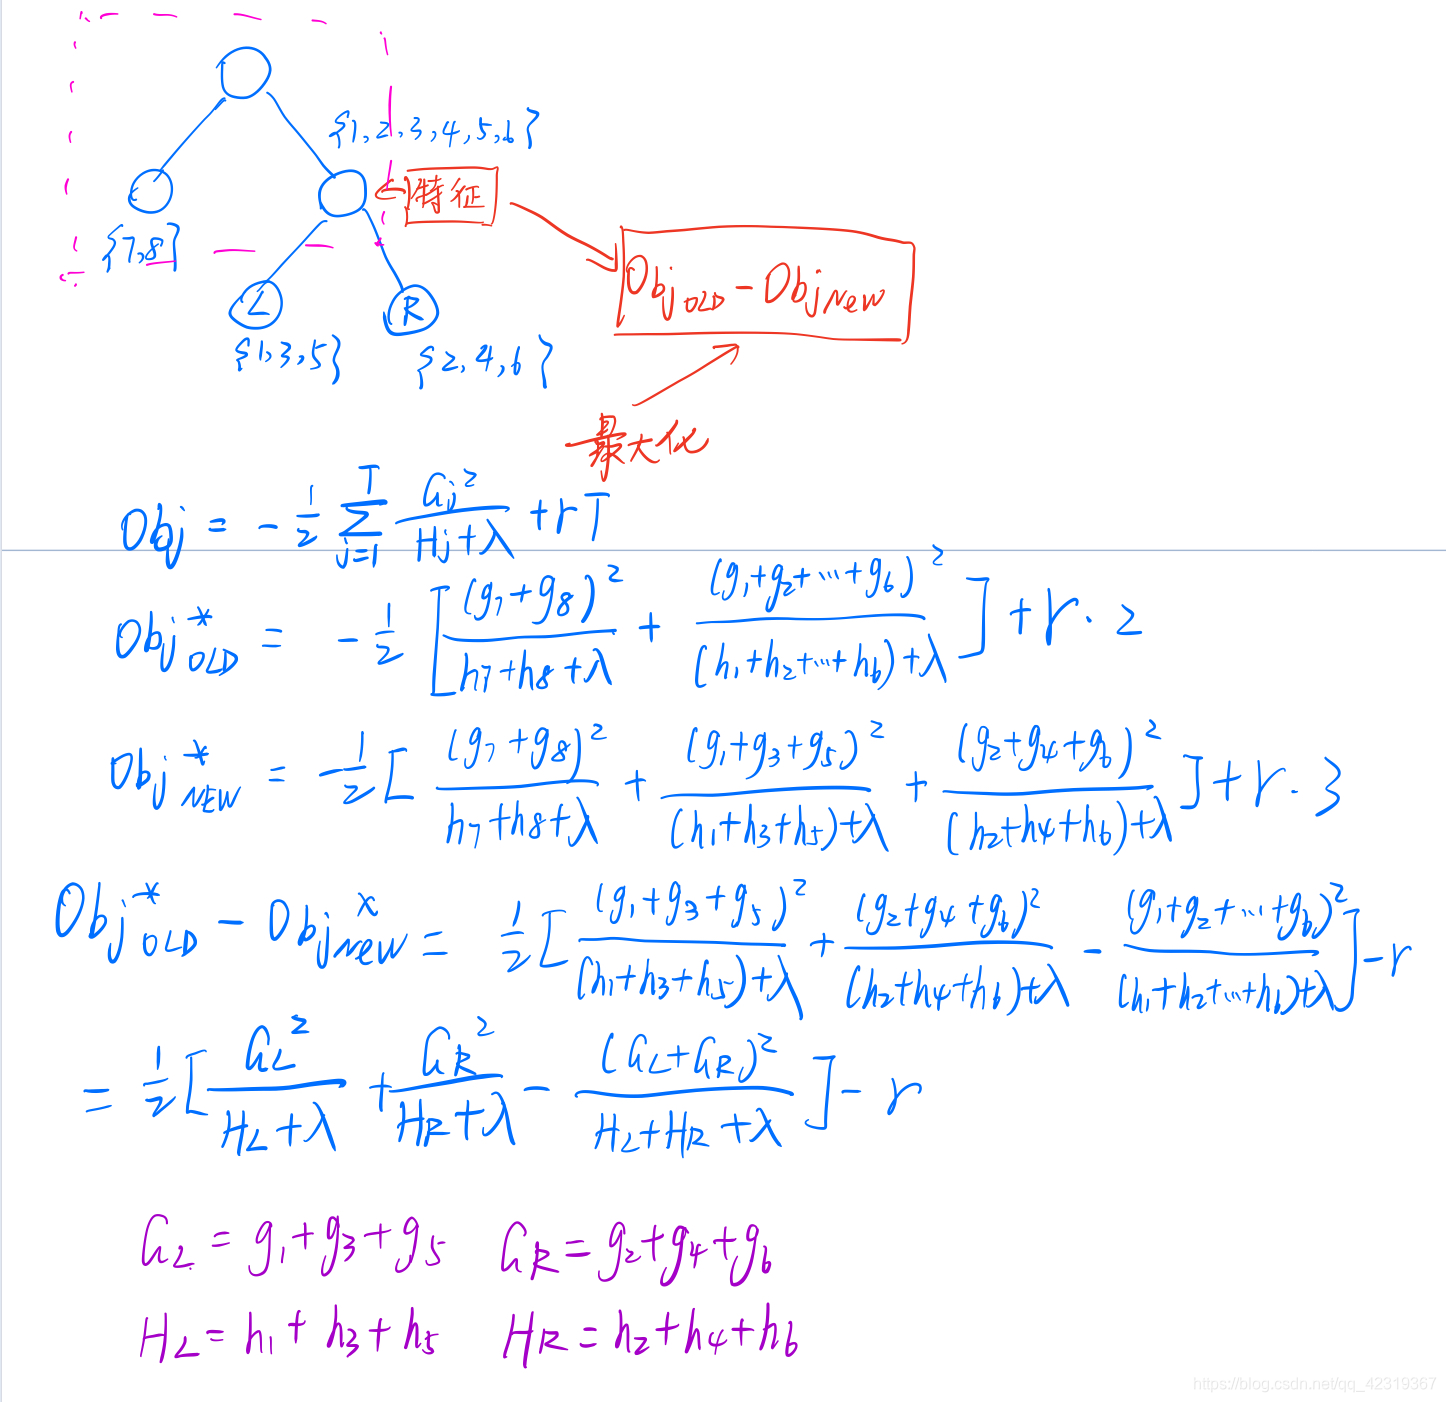 {1,2,3,4,5,6}
特征
{7,8}
Obj_OLD - Obj_New
L R
{1,3,5} {2,4,6}
最大化
Obj = -1/2 ∑_{j=1}^{T} G_j²/(H_j+λ) + rT
Obj*_OLD = -1/2 [(g₇+g₈)²/(h₇+h₈+λ) + (g₁+g₂+…+g₆)²/((h₁+h₂+…+h₆)+λ)] + r·2
Obj*_NEW = -1/2 [(g₇+g₈)²/(h₇+h₈+λ) + (g₁+g₃+g₅)²/((h₁+h₃+h₅)+λ) + (g₂+g₄+g₆)²/((h₂+h₄+h₆)+λ)] + r·3
Obj*_OLD - Obj*_New = 1/2 [(g₁+g₃+g₅)²/((h₁+h₃+h₅)+λ) + (g₂+g₄+g₆)²/((h₂+h₄+h₆)+λ) - (g₁+g₂+…+g₆)²/((h₁+h₂+…+h₆)+λ)] - r
= 1/2 [G_L²/(H_L+λ) + G_R²/(H_R+λ) - (G_L+G_R)²/(H_L+H_R+λ)] - r
G_L = g₁+g₃+g₅ G_R = g₂+g₄+g₆
H_L = h₁+h₃+h₅ H_R = h₂+h₄+h₆
https://blog.csdn.net/qq_42319367